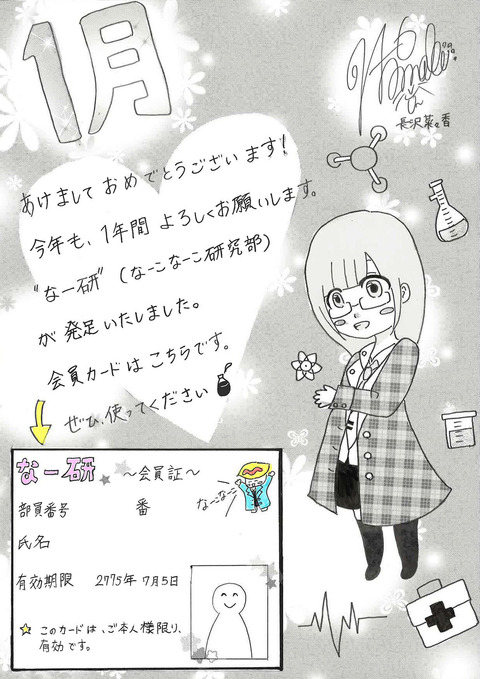 1月
長沢菜々香
あけましておめでとうございます!
今年も、1年間よろしくお願いします。
"なー研"(なーこなーこ研究部)
が発足いたしました。
会員カードはこちらです。
ぜひ、使ってください
なー研 〜会員証〜
なーこなーこ
部員番号 番
氏名
有効期限 2775年7月5日
このカードは、ご本人様限り、
有効です。